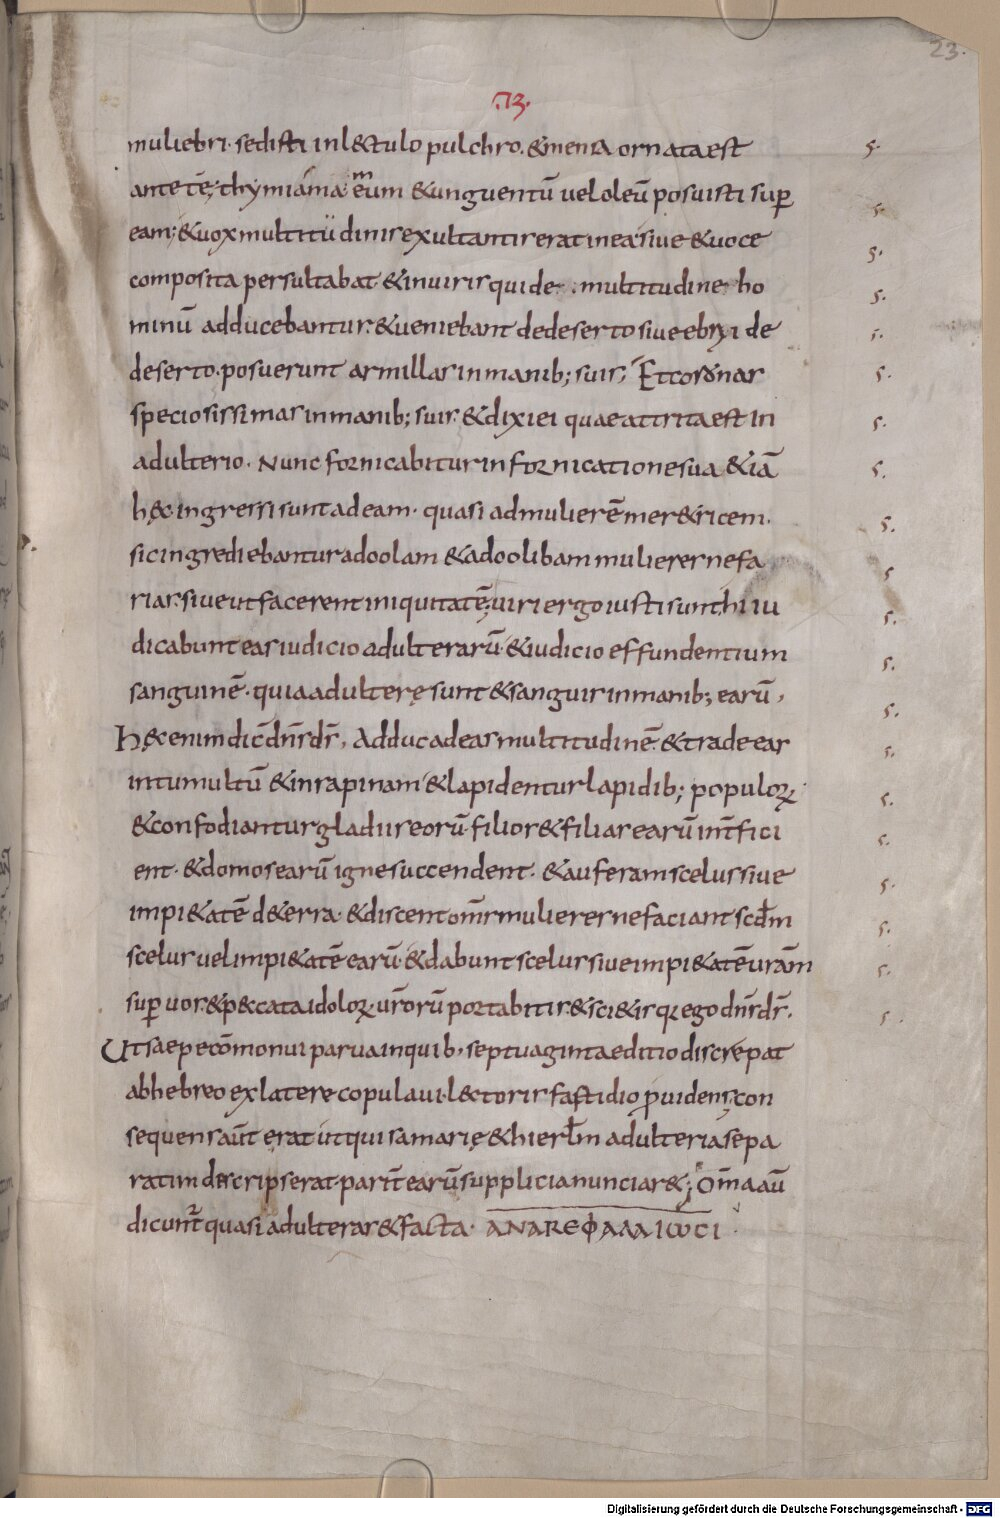 23.
.73.
muliebri· sedisti in l&tulo pulchro. & mensa ornata est
ante te; thymiama meum & unguentū uel oleū posuisti sup
eam; & uox multitudinis exultantis erat in ea siue & uoce
composita persultabat· & in uiris qui de multitudine ho
minū adducebantur· & ueniebant de deserto siue ebrii de
deserto· posuerunt armillas in manib; suis; Et coronas
speciosissimas in manib; suis· & dixi ei quae attrita est in
adulterio· Nunc fornicabitur in fornicatione sua & iā
hęc· ingressi sunt ad eam· quasi ad mulierē mer&ricem·
sic ingrediebantur ad oolam & ad oolibam mulieres nefa
rias· siue ut facerent iniquitatē; uiri ergo iusti sunt hi iu
dicabunt eas iudicio adulterarū· & iudicio effundentium
sanguinē· quia adulterę sunt & sanguis in manib; earū,
hęc enim dic̄ dn̄s ds̄, Adduc ad eas multitudinē· & trade eas
in tumultū & in rapinam & lapidentur lapidib; populoꝝ
& confodiantur gladiis eorū· filios & filias earū int̄fici
ent· & domos earū igne succendent· & auferam scelus siue
impi&atē de terra· & discent om̄s mulieres ne faciant scd̄m
scelus uel impi&atē earū· & dabunt scelus siue impi&atē uram̄
sup uos· & p&cata idoloꝝ ur̄orū portabitis· & sci&is q̄ ego dn̄s ds̄.
Ut saepe cōmonui parua in quib· septuaginta editio discrepat
ab hebreo ex latere copulaui· l&toris fastidio puidens; con
sequens aūt erat ut qui samarię & hierlm̄ adulteria sepa
ratim descripserat· parit̄ earū supplicia nunciar&; Om̄a aū
dicunt̄ quasi adulteras & facta· ΑΝΑΚΕΦΑΛΑΙΩCΙ
s·
s·
s·
s·
s·
s·
s·
s·
s·
s
s·
s·
s·
s·
s·
s·
s·
s·
s·
s·
Digitalisierung gefördert durch die Deutsche Forschungsgemeinschaft - DFG